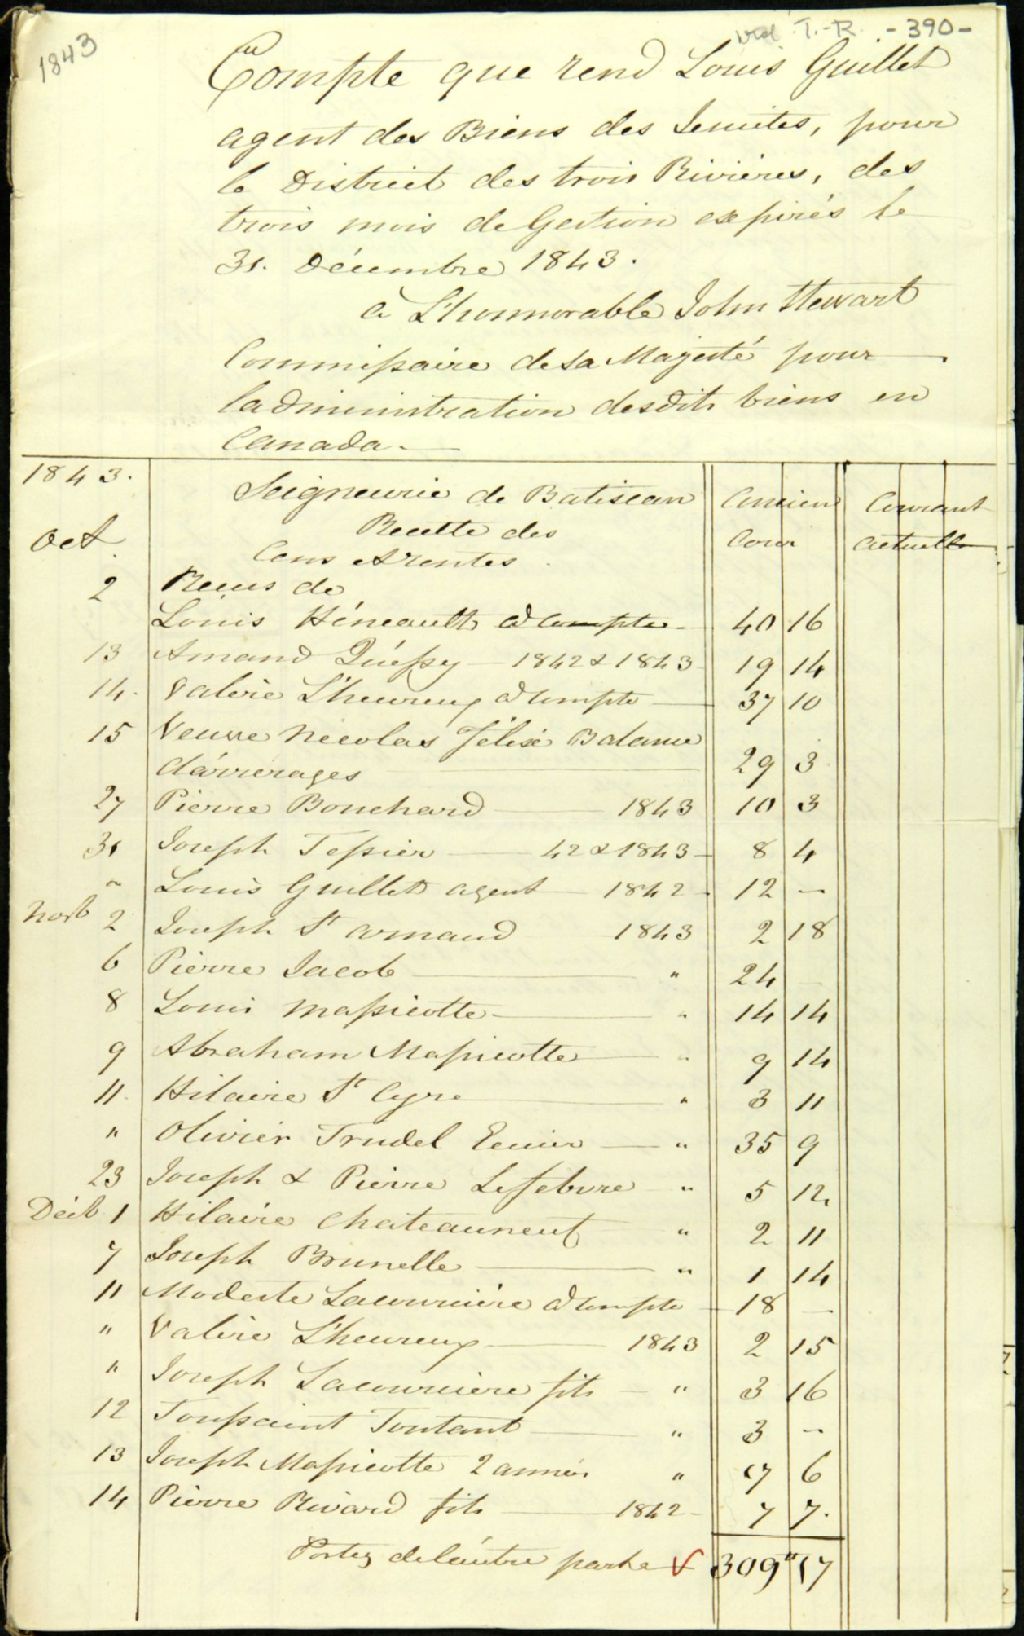 1843
T.-R. -390-
Compte que rend Louis Guillet
agent des Biens des Jesuites, pour
le District des trois Rivières, des
trois mois de Gestion expirés le
31. Décembre 1843.
à L'honnorable John Stewart
Commissaire de sa Majesté pour
l'administration desdits biens en
Canada.
1843. Seigneurie de Batiscan Ancien Courant
Recette des
Oct. Cour actuelle
Cens & Rentes
2 Reçus de
Louis Héneault àcompte 40 16
13 Amand Quessy 1842 & 1843 19 14
14. Valère L'heureux àcompte 37 10
15 Veuve Nicolas Félixe Balance
d'arrerages 29 3
27 Pierre Bouchard 1843 10 3
31 Joseph Tessier 42 & 1843 8 4
" Louis Guillet agent 1842 12 —
Novb 2 Joseph St arnaud 1843 2 18
6 Pierre Jacob " 24 —
8 Louis Massicotte " 14 14
9 Abraham Massicotte " 9 14
11. Hilaire St Cyre " 3 11
" Olivier Trudel Ecuier " 35 9
23 Joseph & Pierre Lefebvre " 5 12
Décb 1 Hilaire Chateauneuf " 2 11
7 Joseph Brunelle " 1 14
11 Modeste Lacoursière àcompte 18 —
" Valère L'heureux 1843 2 15
" Joseph Lacoursiere fils " 3 16
12 Toussaint Toutant " 3 —
13 Joseph Massicotte 2 années " 17 6
14 Pierre Rivard fils 1842 7 7.
Portez de l'autre parte 309" 17